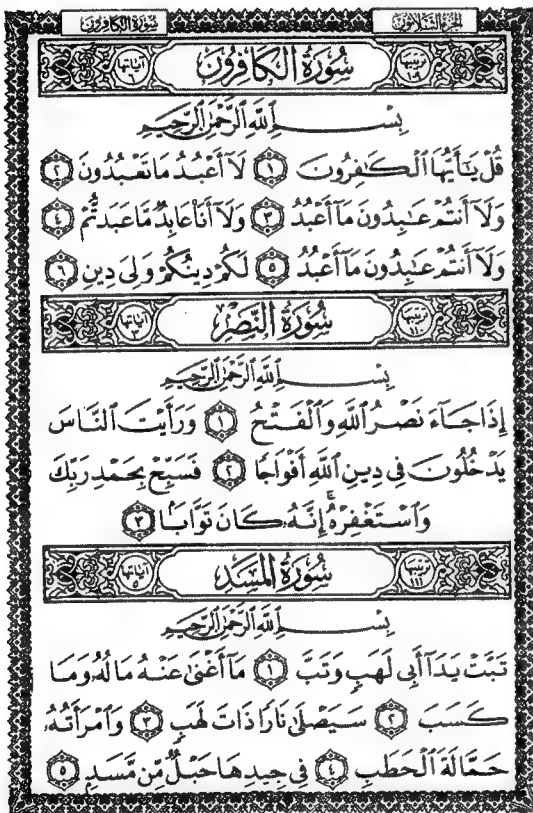 سُورَةُ الكَافِرُونَ الجُزْءُ الثَّلَاثُونَ
ترتيبها ١٠٩ سُورَةُ الكَافِرُونَ آياتها ٦
بِسْمِ اللَّهِ الرَّحْمَٰنِ الرَّحِيمِ
قُلْ يَٰٓأَيُّهَا ٱلْكَٰفِرُونَ ١ لَآ أَعْبُدُ مَا تَعْبُدُونَ ٢
وَلَآ أَنتُمْ عَٰبِدُونَ مَآ أَعْبُدُ ٣ وَلَآ أَنَا۠ عَابِدٌ مَّا عَبَدتُّمْ ٤
وَلَآ أَنتُمْ عَٰبِدُونَ مَآ أَعْبُدُ ٥ لَكُمْ دِينُكُمْ وَلِىَ دِينِ ٦
ترتيبها ١١٠ سُورَةُ النَّصْرِ آياتها ٣
بِسْمِ اللَّهِ الرَّحْمَٰنِ الرَّحِيمِ
إِذَا جَآءَ نَصْرُ ٱللَّهِ وَٱلْفَتْحُ ١ وَرَأَيْتَ ٱلنَّاسَ
يَدْخُلُونَ فِى دِينِ ٱللَّهِ أَفْوَاجًا ٢ فَسَبِّحْ بِحَمْدِ رَبِّكَ
وَٱسْتَغْفِرْهُ ۚ إِنَّهُۥ كَانَ تَوَّابًۢا ٣
ترتيبها ١١١ سُورَةُ المَسَدِ آياتها ٥
بِسْمِ اللَّهِ الرَّحْمَٰنِ الرَّحِيمِ
تَبَّتْ يَدَآ أَبِى لَهَبٍ وَتَبَّ ١ مَآ أَغْنَىٰ عَنْهُ مَالُهُۥ وَمَا
كَسَبَ ٢ سَيَصْلَىٰ نَارًا ذَاتَ لَهَبٍ ٣ وَٱمْرَأَتُهُۥ
حَمَّالَةَ ٱلْحَطَبِ ٤ فِى جِيدِهَا حَبْلٌ مِّن مَّسَدٍۭ ٥